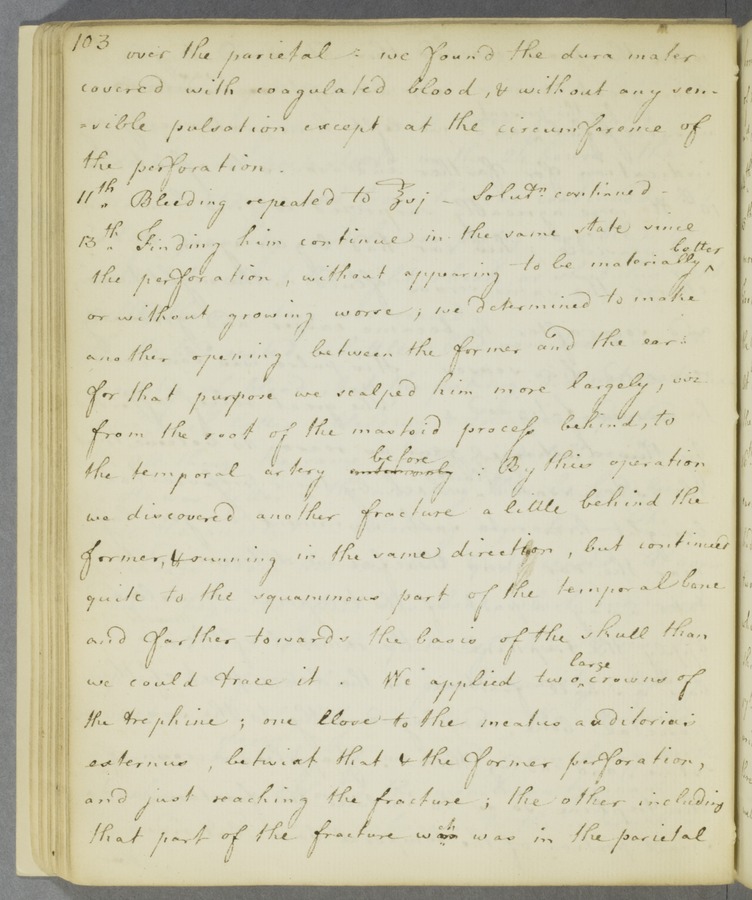 103
over the parietal : we found the dura mater
covered with coagulated blood, & without any sen-
=sible pulsation except at the circumference of
the perforation.
11th Bleeding repeated to ℥vj - Solutn. continued -
13th Finding him continue in the same state since
the perforation, without appearing to be materially better
or without growing worse; we determined to make
another opening between the former and the ear:
for that purpose we scalped him more largely, viz
from the root of the mastoid process behind, to
the temporal artery before : By this operation
we discovered another fracture a little behind the
former, & running in the same direction, but continued
quite to the squammous part of the temporal bone
and farther towards the basis of the skull than
we could trace it. We applied two large crowns of
the trephine; one close to the meatus auditorius
externus, betwixt that & the former perforation,
and just reaching the fracture; the other including
that part of the fracture wch was in the parietal